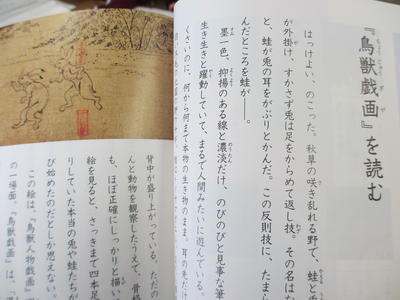 『鳥獣戯画』を読む
はっけよい、のこった。秋草の咲き乱れる野で、蛙と
が外掛け、すかさず兎は足をからめて返し技。その名はな
と、蛙が兎の耳をがぶりとかんだ。この反則技に、たまら
んだところを蛙が――。
墨一色、抑揚のある線と濃淡だけ、のびのびと見事な筆
生き生きと躍動していて、まるで人間みたいに遊んでいる。
くさいのに、何から何まで本物の生き物のまま。耳の先だけ
背中が盛り上がっている。ただの
んと動物を観察したうえで、骨格
も、ほぼ正確にしっかりと描い
絵を見ると、さっきまで四本足
りしていた本当の兎や蛙たちが
び始めたのだとしか思えない。
この絵は、『鳥獣人物戯画』
の一場面。『鳥獣戯画』は、